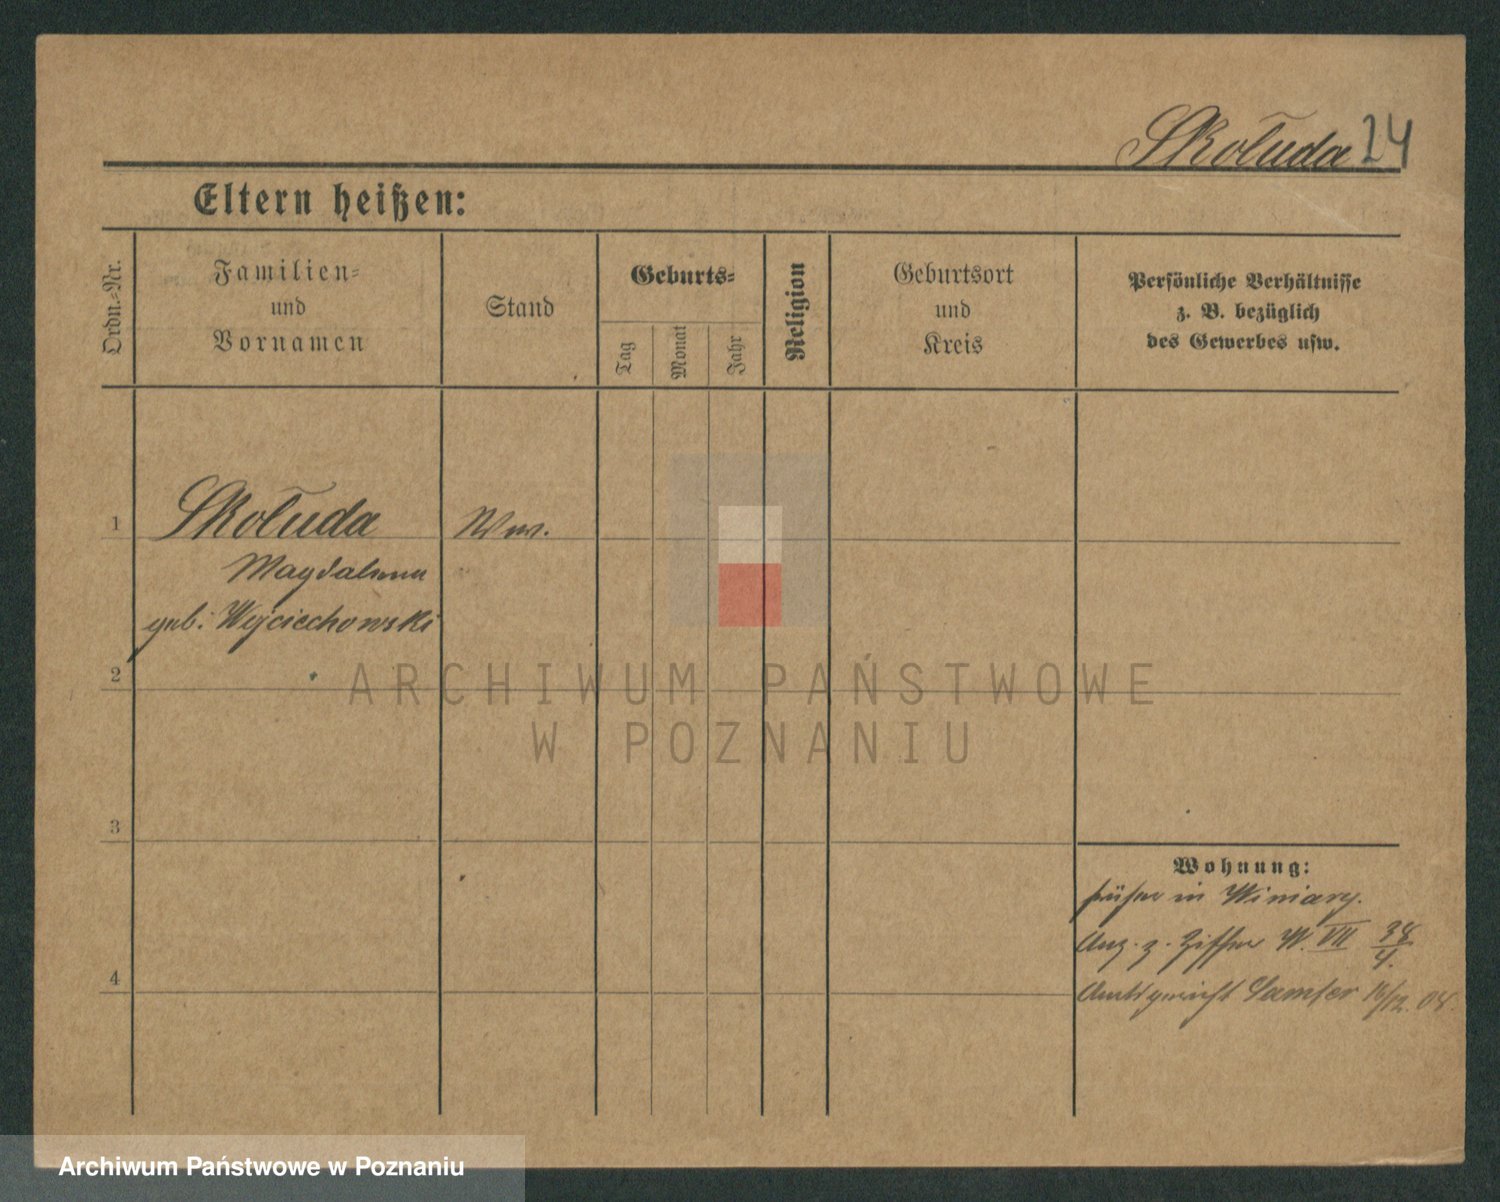 Skołuda 24
Eltern heißen:
Ordn.-Nr.
Familien-
und
Vornamen
Stand
Geburts-
Tag
Monat
Jahr
Religion
Geburtsort
und
Kreis
Persönliche Verhältnisse
z. B. bezüglich
des Gewerbes usw.
1
Skołuda
Ww.
Magdalena
geb. Wojciechowski
2
3
4
Wohnung:
früher in Winiary.
Anz. z. Ziffer W. VII 38/4.
Amtsgericht Samter 16/12. 08.
ARCHIWUM PAŃSTWOWE
W POZNANIU
Archiwum Państwowe w Poznaniu